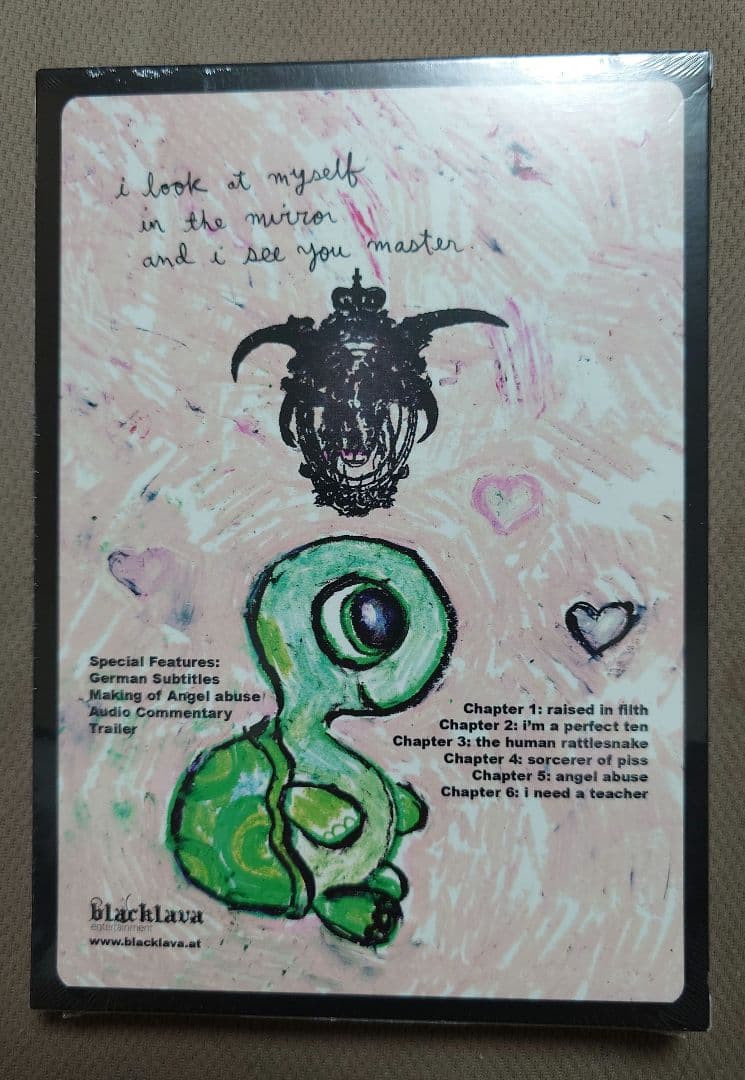 i look at myself
in the mirror
and i see you master.
Special Features:
German Subtitles
Making of Angel abuse
Audio Commentary
Trailer
Chapter 1: raised in filth
Chapter 2: i'm a perfect ten
Chapter 3: the human rattlesnake
Chapter 4: sorcerer of piss
Chapter 5: angel abuse
Chapter 6: i need a teacher
blacklava
entertainment
www.blacklava.at